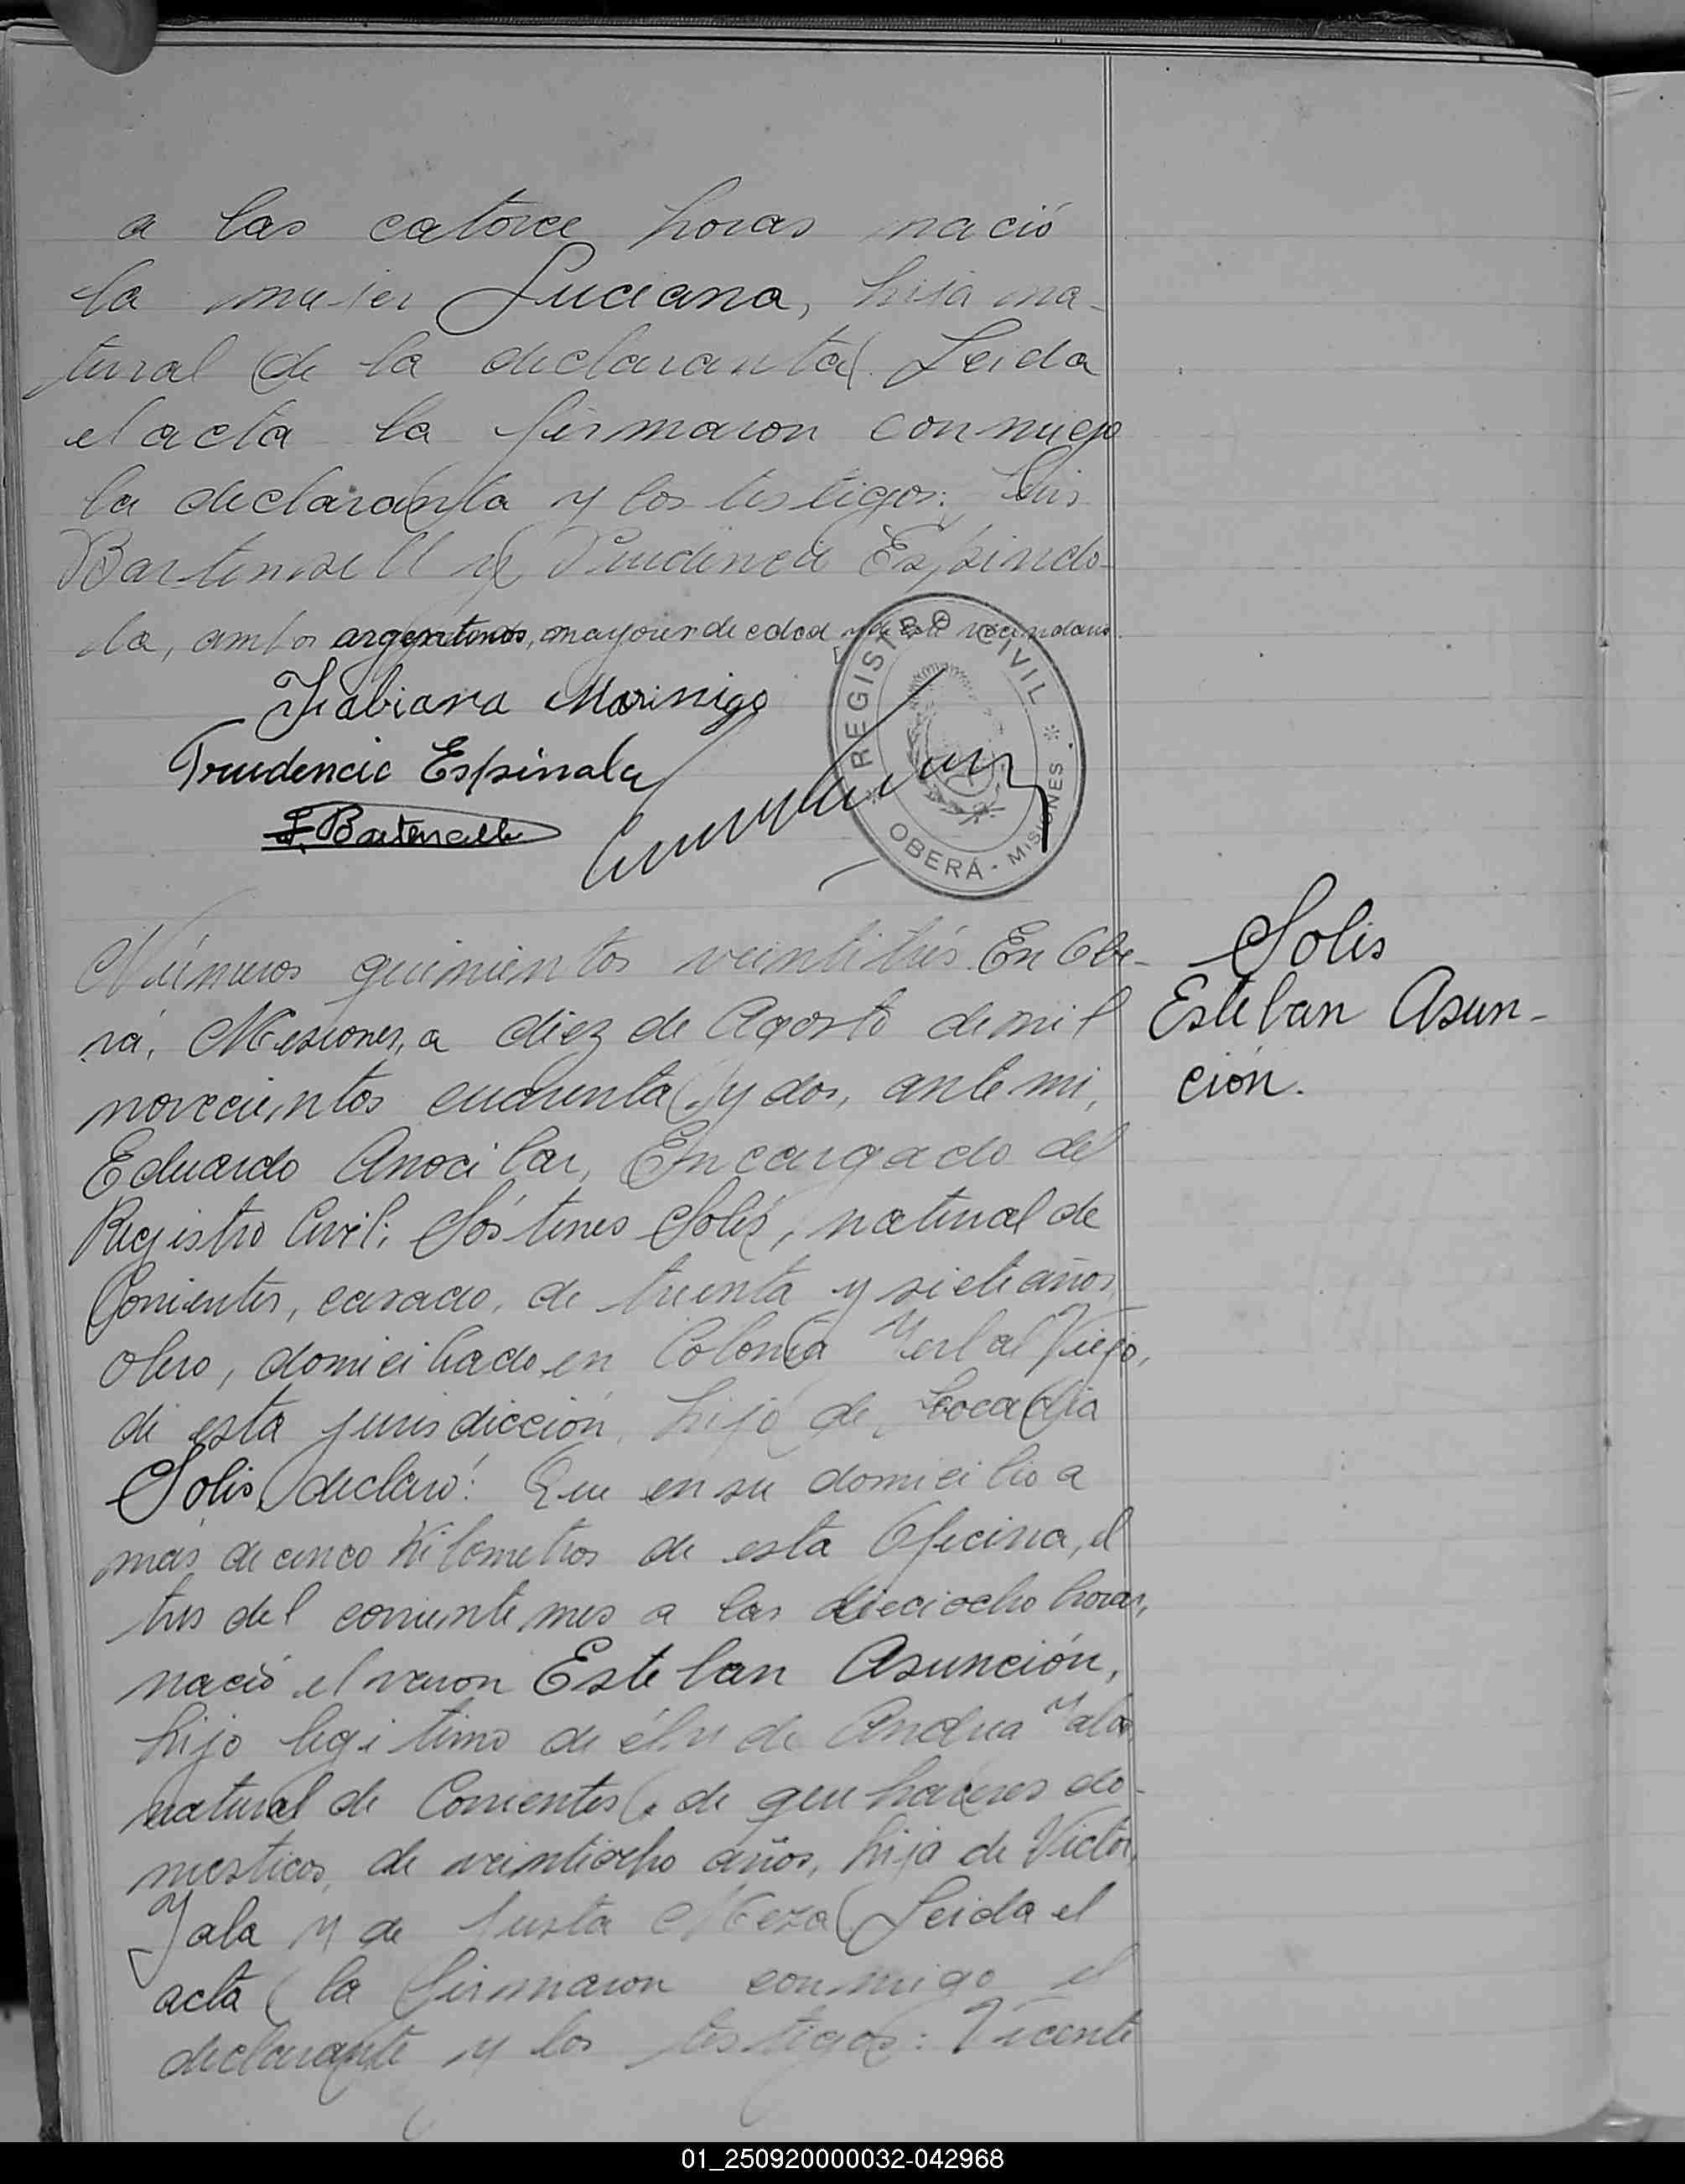 a las catorce horas nació
la mujer Luciana, hija na-
tural de la declaranta. Leida
el acta la firmaron conmigo
la declaranta y los testigos: Luis
y Prudencia Espindo-
la, ambos argentinos, mayores de edad y de este vecindario.
Fabiana Marinigo
Prudencio Espinola
REGISTRO CIVIL
OBERÁ - MISIONES
Número quinientos veintitrés. En Obe-
rá, Misiones, a diez de Agosto de mil
novecientos cuarenta y dos, ante mi,
Eduardo Encargado del
Registro Civil; Sóstenes Solis, natural de
Corrientes, casado, de treinta y siete años,
domiciliado en Colonia Yerbal Viejo,
de esta jurisdicción, hijo de Leocadia
Solis, declaró: Que en su domicilio a
más de cinco Kilometros de esta Oficina, el
tres del corriente mes a las dieciocho horas,
nació el varon Esteban Asunción,
hijo legitimo de él y de Andrea Yala
natural de Corrientes, de quehaceres do-
mesticos, de veintiocho años, hija de Victor
Yala y de Justa Meza. Leida el
acta la firmaron conmigo el
declarante y los testigos: Vicente
Solis
Esteban Asun-
ción.
01_250920000032-042968